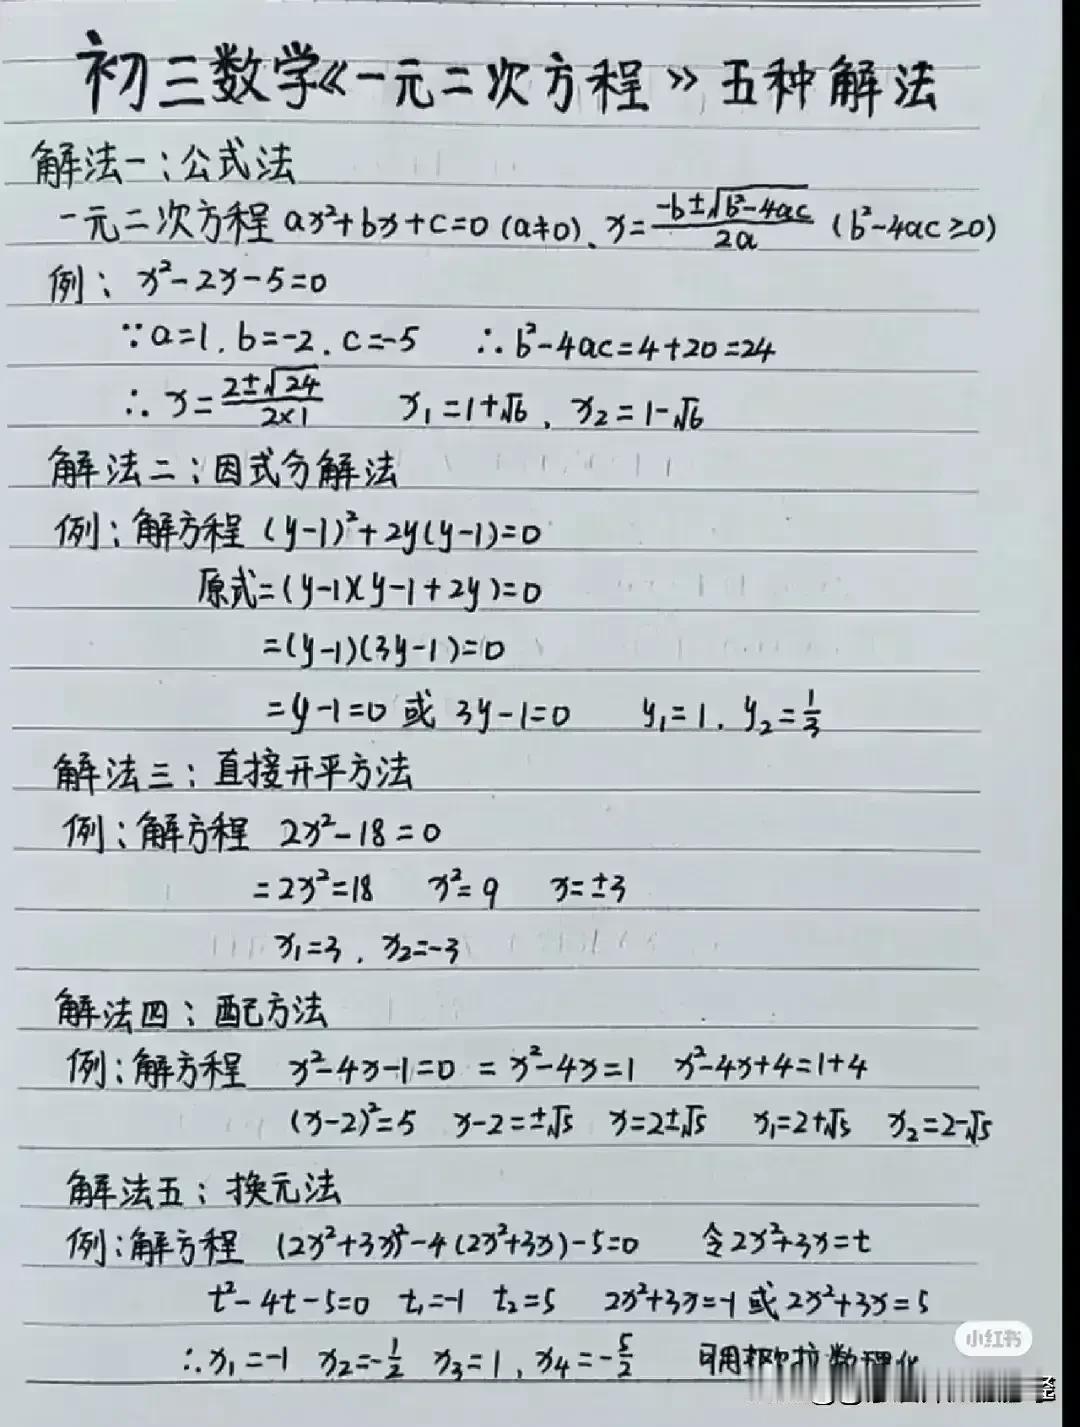 初三数学《一元二次方程》五种解法
解法一:公式法
一元二次方程 ax²+bx+c=0 (a≠0)、x=\frac{-b±√(b²-4ac)}{2a} (b²-4ac≥0)
例: x²-2x-5=0
∵a=1, b=-2, c=-5 ∴b²-4ac=4+20=24
∴x=\frac{2±√24}{2×1} x₁=1+√6, x₂=1-√6
解法二:因式分解法
例:解方程 (y-1)²+2y(y-1)=0
原式=(y-1)(y-1+2y)=0
=(y-1)(3y-1)=0
=y-1=0 或 3y-1=0 y₁=1, y₂=\frac{1}{3}
解法三:直接开平方法
例:解方程 2x²-18=0
=2x²=18 x²=9 x=±3
x₁=3, x₂=-3
解法四:配方法
例:解方程 x²-4x-1=0 = x²-4x=1 x²-4x+4=1+4
(x-2)²=5 x-2=±√5 x=2±√5 x₁=2+√5 x₂=2-√5
解法五:换元法
例:解方程 (2x²+3x)²-4(2x²+3x)-5=0 令2x²+3x=t
t²-4t-5=0 t₁=-1 t₂=5 2x²+3x=-1 或 2x²+3x=5
∴x₁=-1 x₂=-\frac{1}{2} x₃=1, x₄=-\frac{5}{2}
小红书